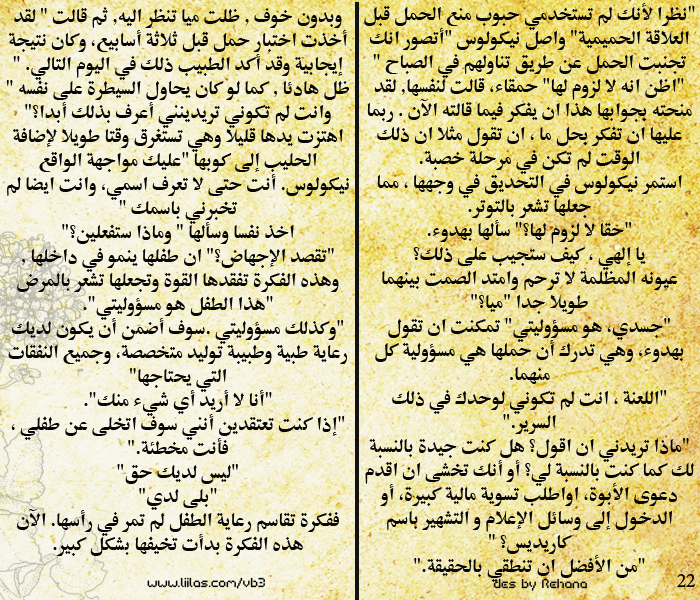 "نظرا لأنك لم تستخدمي حبوب منع الحمل قبل
العلاقة الحميمية" واصل نيكولوس "أتصور انك
تجنبت الحمل عن طريق تناولهم في الصباح "
"اظن انه لا لزوم لها" حمقاء، قالت لنفسها, لقد
منحته بجوابها هذا ان يفكر فيما قالته الآن . ربما
عليها ان تفكر بحل ما ، ان تقول مثلا ان ذلك
الوقت لم تكن في مرحلة خصبة.
استمر نيكولوس في التحديق في وجهها ، مما
جعلها تشعر بالتوتر.
"حقا لا لزوم لها؟" سألها بهدوء.
يا إلهي ، كيف ستجيب على ذلك؟
عيونه المظلمة لا ترحم وامتد الصمت بينهما
طويلا جدا "ميا؟"
"جسدي، هو مسؤوليتي" تمكنت ان تقول
بهدوء، وهي تدرك أن حملها هي مسؤولية كل
منهما.
"اللعنة ، انت لم تكوني لوحدك في ذلك
السرير."
"ماذا تريدني ان اقول؟ هل كنت جيدة بالنسبة
لك كما كنت بالنسبة لي؟ أو أنك تخشى ان اقدم
دعوى الأبوة، اواطلب تسوية مالية كبيرة، أو
الدخول إلى وسائل الإعلام و التشهير باسم
كاريديس؟ "
"من الأفضل ان تنطقي بالحقيقة."
des by Rehana
22
وبدون خوف , ظلت ميا تنظر اليه, ثم قالت " لقد
أخذت اختبار حمل قبل ثلاثة أسابيع، وكان نتيجة
إيجابية وقد أكد الطبيب ذلك في اليوم التالي. "
ظل هادئا , كما لو كان يحاول السيطرة على نفسه "
وانت لم تكوني تريدينني أعرف بذلك أبدا؟"
اهتزت يدها قليلا وهي تستغرق وقتا طويلا لإضافة
الحليب إلى كوبها "عليك مواجهة الواقع
نيكولوس. أنت حتى لا تعرف اسمي، وانت ايضا لم
تخبرني باسمك "
اخذ نفسا وسألها " وماذا ستفعلين؟"
"تقصد الإجهاض؟" ان طفلها ينمو في داخلها ,
وهذه الفكرة تفقدها القوة وتجعلها تشعر بالمرض
"هذا الطفل هو مسؤوليتي".
"وكذلك مسؤوليتي .سوف أضمن أن يكون لديك
رعاية طبية وطبيبة توليد متخصصة، وجميع النفقات
التي يحتاجها"
"أنا لا أريد أي شيء منك".
"إذا كنت تعتقدين أنني سوف اتخلى عن طفلي ,
فأنت مخطئة."
"ليس لديك حق"
"بلى لدي"
ففكرة تقاسم رعاية الطفل لم تمر في رأسها. الآن
هذه الفكرة بدأت تخيفها بشكل كبير.
www.liilas.com/vb3